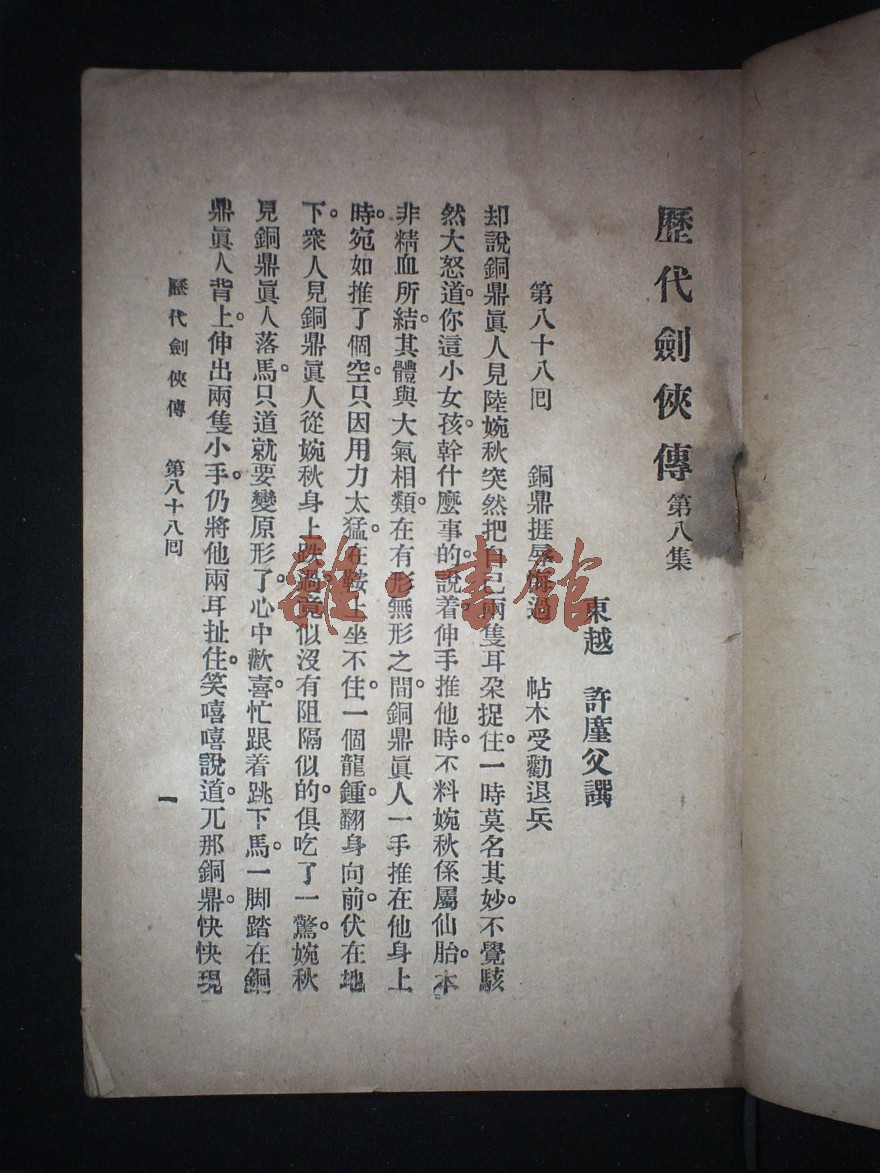 歷代劍俠傳 第八集
東越 許廑父譔
第八十八囘 銅鼎捱辱悔過 帖木受勸退兵
却說銅鼎眞人見陸婉秋突然把自己兩隻耳朶捉住。一時莫名其妙。不覺駭
然大怒道。你這小女孩。幹什麼事的。說着伸手推他時。不料婉秋係屬仙胎。本
非精血所結。其體與大氣相類。在有形無形之間。銅鼎眞人一手推在他身上
時。宛如推了個空。只因用力太猛。在鞍上坐不住。一個龍鍾。翻身向前。伏在地
下。衆人見銅鼎眞人從婉秋身上跌過。竟似沒有阻隔似的。俱吃了一驚。婉秋
見銅鼎眞人落馬。只道就要變原形了。心中歡喜。忙跟着跳下馬。一脚踏在銅
鼎眞人背上。伸出兩隻小手。仍將他兩耳扯住。笑嘻嘻說道。兀那銅鼎。快快現
歷代劍俠傳 第八十八囘
一
雜·書館